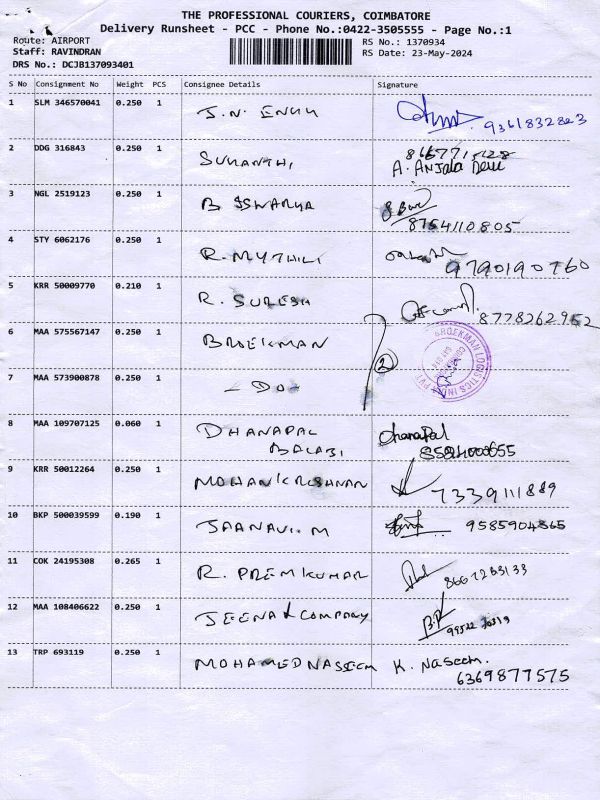 THE PROFESSIONAL COURIERS, COIMBATORE
Delivery Runsheet - PCC - Phone No.:0422-3505555 - Page No.:1
Route: AIRPORT
RS No.: 1370934
Staff: RAVINDRAN
RS Date: 23-May-2024
DRS No.: DCJB137093401
S No Consignment No Weight PCS Consignee Details Signature
1 SLM 346570041 0.250 1 J.N.
9361832823
2 DDG 316843 0.250 1 SUMANTHI,
A. Anjala Devi
3 NGL 2519123 0.250 1 B ISWARYA
8754110805
4 STY 6062176 0.250 1 R. MYTHILI
9790190760
5 KRR 50009770 0.210 1 R. SURESH
8778262952
6 MAA 575567147 0.250 1 BROEKMAN
2
BROEKMAN LOGISTICS INDIA PVT
7 MAA 573900878 0.250 1 - DO -
8 MAA 109707125 0.060 1 DHANAPAL
BALAJI
Dhanapal
9 KRR 50012264 0.250 1 MOHANKRISHNAN
7339111889
10 BKP 500039599 0.190 1 JAANAVI. M
9585904865
11 COK 24195308 0.265 1 R. PREMKUMAR
8667283133
12 MAA 108406622 0.250 1 JEENA & COMPANY
13 TRP 693119 0.250 1 MOHAMED NASEEM K. Naseem.
6369877575